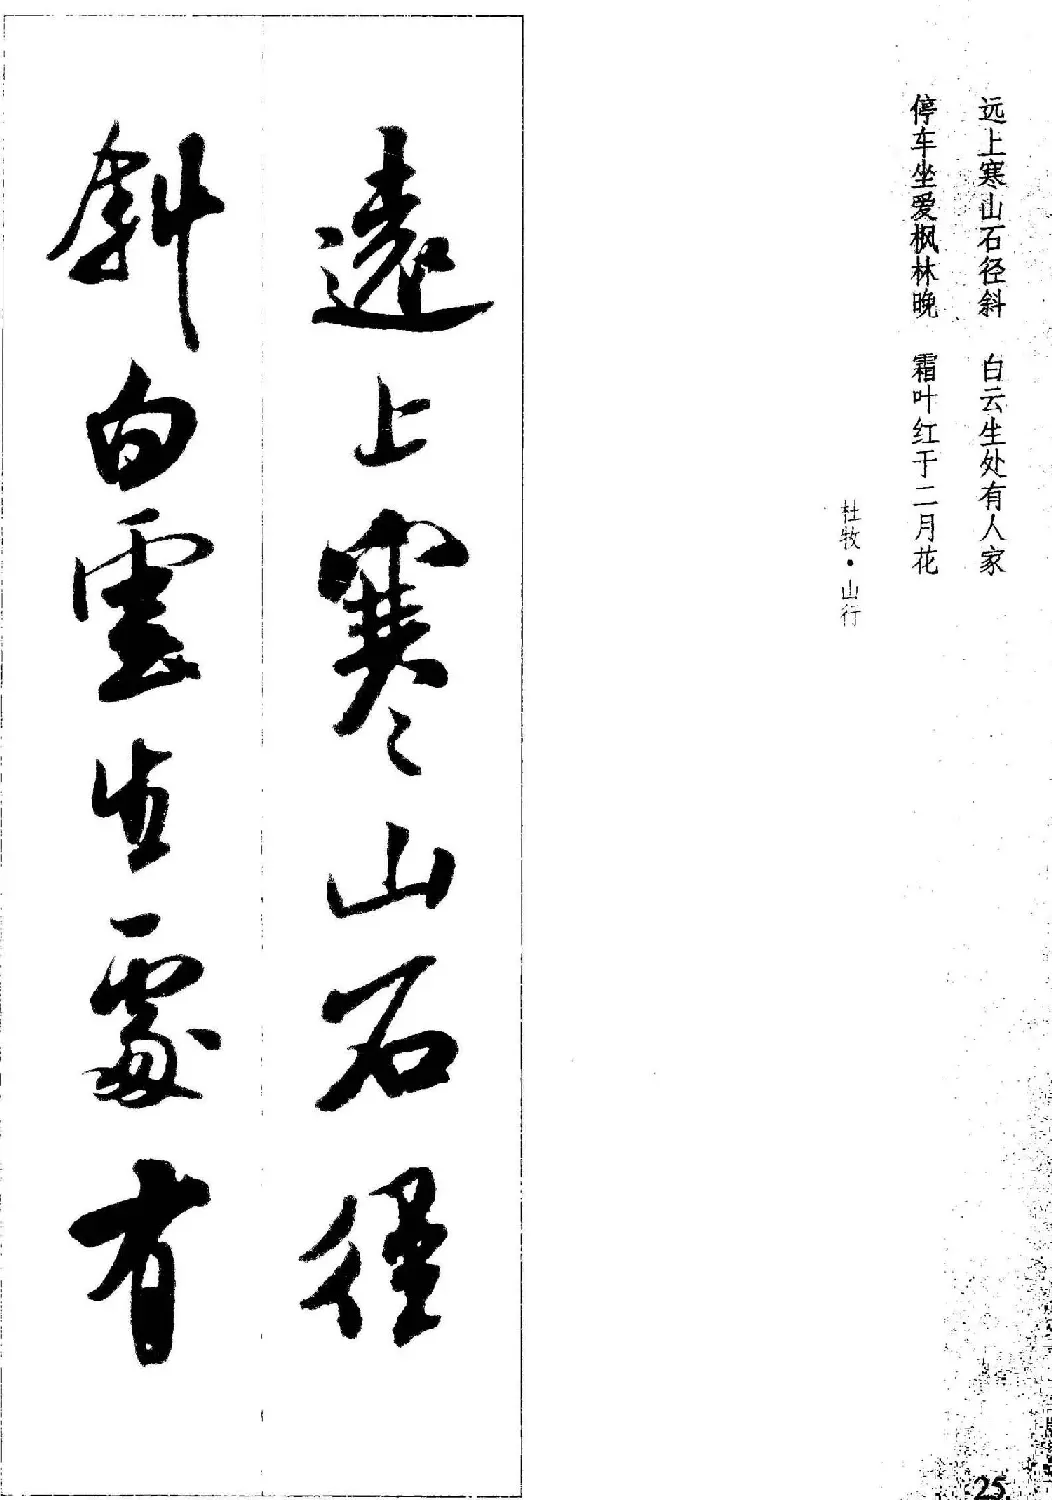 远上寒山石径斜 白云生处有人家
停车坐爱枫林晚 霜叶红于二月花
杜牧·山行
遠上寒山石徑
斜白雲生處有
25